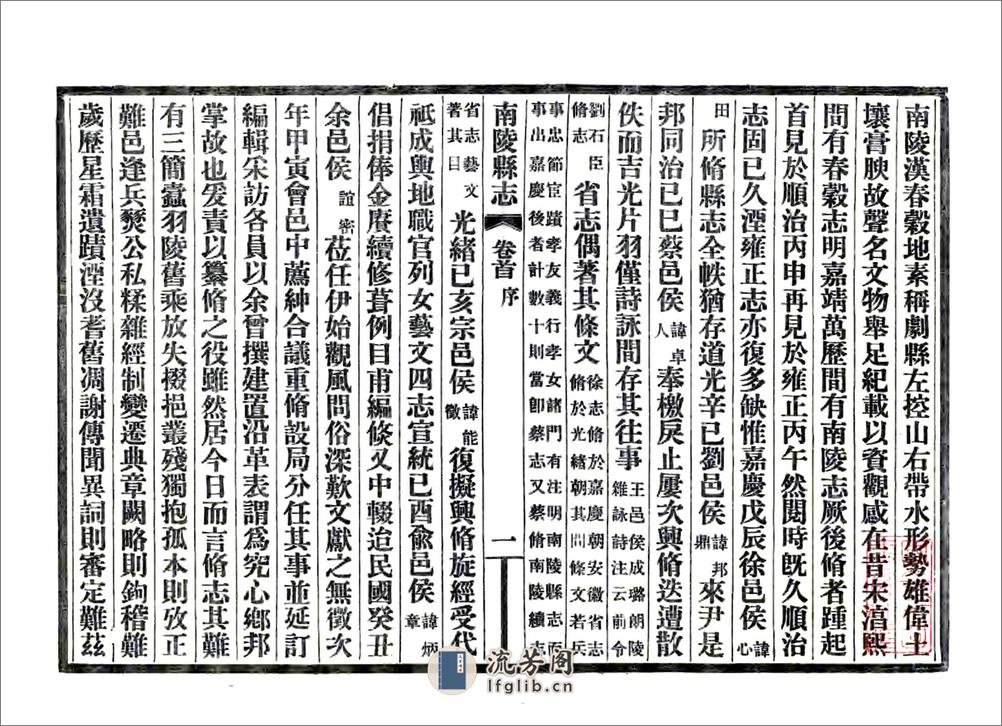 南陵漢春穀地素稱劇縣左控山右帶水形勢雄偉土
壤膏腴故聲名文物舉足紀載以資觀感在昔宋淳熙
間有春穀志明嘉靖萬歷間有南陵志厥後脩者踵起
首見於順治丙申再見於雍正丙午然閱時旣久順治
志固已久湮雍正志亦復多缺惟嘉慶戊辰徐邑侯諱心
田所脩縣志全帙猶存道光辛巳劉邑侯諱邦鼎來尹是
邦同治己巳蔡邑侯諱卓人奉檄戾止屢次興脩迭遭散
佚而吉光片羽僅詩詠間存其往事王邑侯成璐朗陵雜詠詩注云前令
劉石臣脩志省志偶著其條文徐志脩於嘉慶朝安徽省志脩於光緖朝其間條文若兵
事忠節宦蹟孝友義行孝女諸門有注明南陵縣志而事出嘉慶後者計數十則當卽蔡志又蔡脩南陵續志
南陵縣志
卷首
序
一
省志藝文著其目光緖己亥宗邑侯諱能徵復擬興脩旋經受代
祗成輿地職官列女藝文四志宣統己酉兪邑侯諱炳章
倡捐俸金賡續修葺例目甫編倐又中輟迨民國癸丑
余邑侯誼密莅任伊始觀風問俗深歎文獻之無徵次
年甲寅會邑中薦紳合議重脩設局分任其事並延訂
編輯采訪各員以余曾撰建置沿革表謂爲究心鄉邦
掌故也爰責以纂脩之役雖然居今日而言脩志其難
有三簡蠹羽陵舊乘放失掇拾叢殘獨抱孤本則攷正
難邑逢兵燹公私糅雜經制變遷典章闕略則鉤稽難
歲歷星霜遺蹟湮沒耆舊凋謝傳聞異詞則審定難茲
流芳阁
lfglib.cn